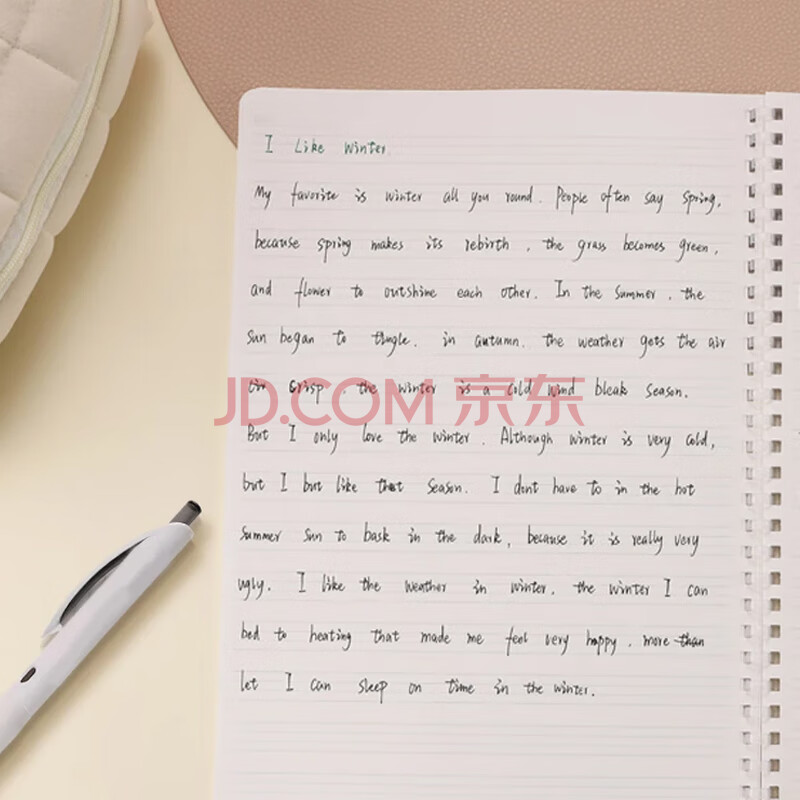 I Like Winter
My favorite is winter all you round. People often say spring,
because spring makes its rebirth, the grass becomes green,
and flower to outshine each other. In the summer, the
sun began to tingle. in autumn. the weather gets the air
air crisp, the winter is a cold wind bleak season.
But I only love the winter. Although winter is very cold,
but I but like that season. I dont have to in the hot
summer sun to bask in the dark, because it is really very
ugly. I like the weather in winter. the winter I can
bed to heating that made me feel very happy, more than
let I can sleep on time in the winter.
JD.COM 京东